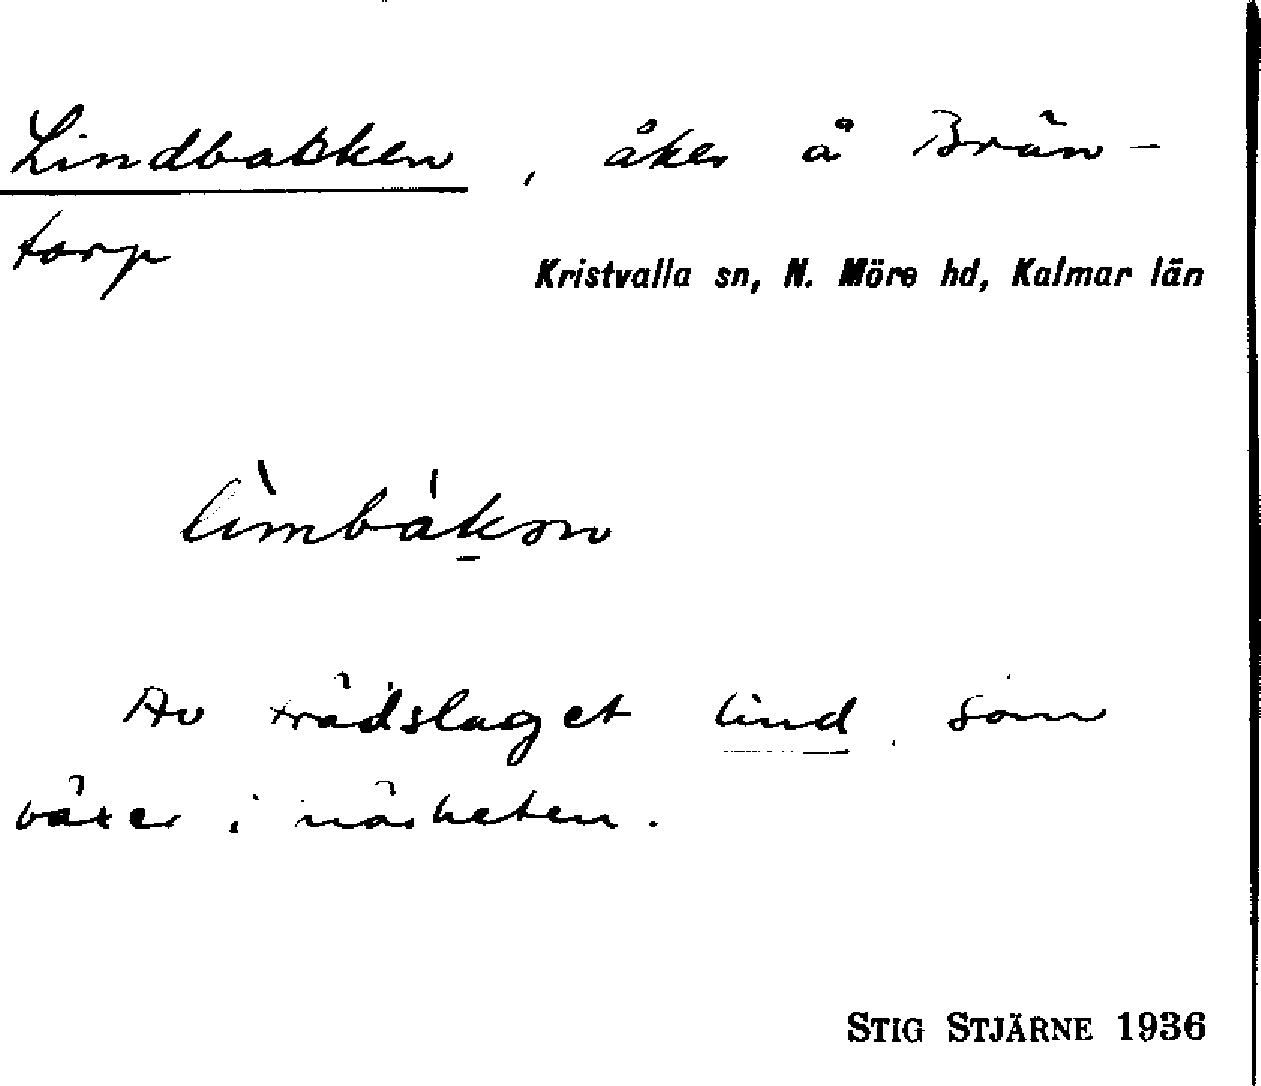 Lindbakken, åker å Brän-
torp
Kristvalla sn, N. Möre hd, Kalmar län
lìmbákən
Av trädslaget lind, som
växer i närheten.
STIG STJÄRNE 1936